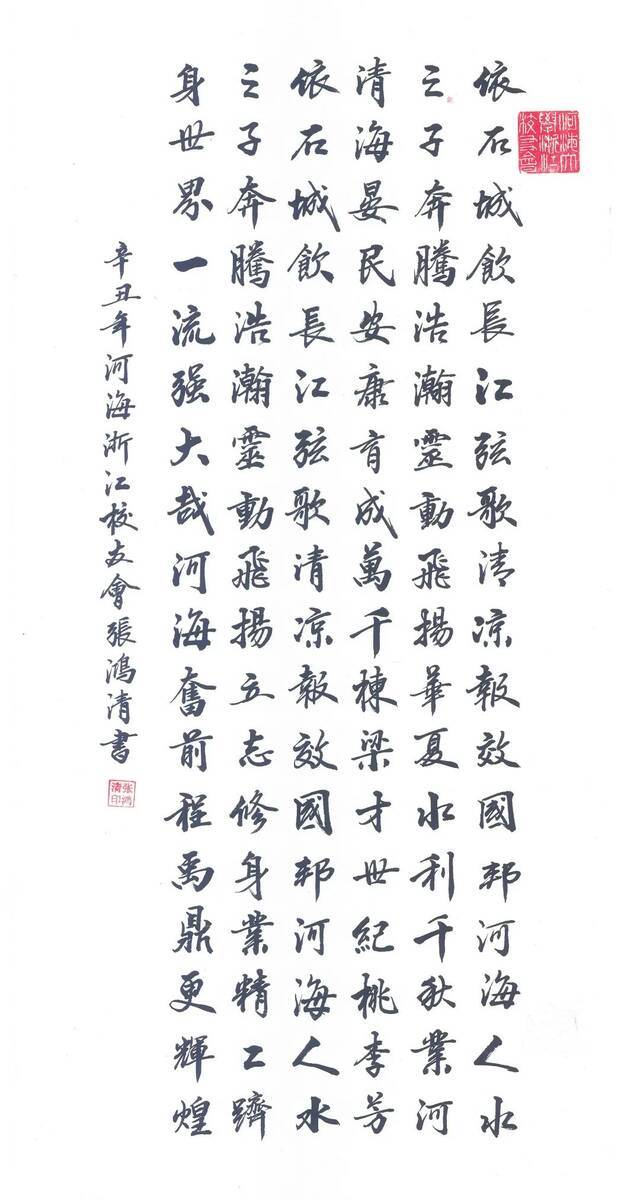 河海大
學浙江
校友會
依石城飲長江弦歌清凉報效國邦河海人水
之子奔騰浩瀚靈動飛揚華夏水利千秋業河
清海晏民安康育成萬千棟梁才世紀桃李芳
依石城飲長江弦歌清凉報效國邦河海人水
之子奔騰浩瀚靈動飛揚立志修身業精工躋
身世界一流强大哉河海奮前程禹鼎更輝煌
辛丑年河海浙江校友會張鴻清書
张鸿
清印